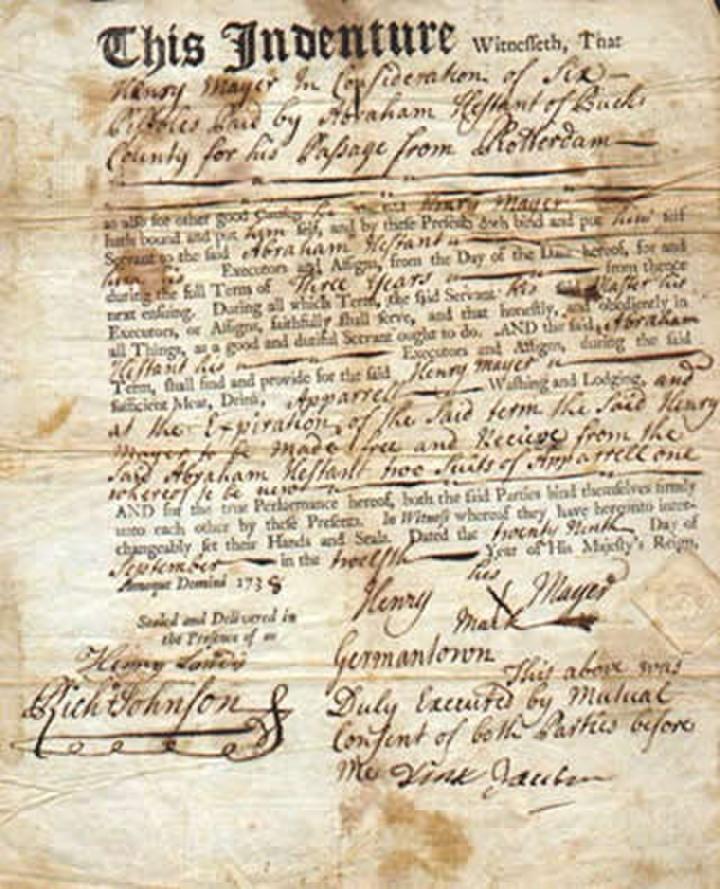 This Indenture Witnesseth, That
Henry Mayer In Consideration of Six
Pistoles Paid by Abraham Hestant of Bucks
County for his Passage from Rotterdam
as also for other good Henry Mayer
hath bound and put him self, and by these Presents doth bind and put him self
Servant to the said Abraham Hestant
his Executors and Assigns, from the Day of the Date hereof, for and
during the full Term of Three Years from thence
next ensuing. During all which Term, the said Servant his said Master his
Executors, or Assigns, faithfully shall serve, and that honestly, and obediently in
all Things, as a good and dutiful Servant ought to do. AND the said Abraham
Hestant his Executors and Assigns, during the said
Term, shall find and provide for the said Henry Mayer
sufficient Meat, Drink, Apparrell Washing and Lodging, and
at the Expiration of the Said term the Said Henry
Mayer to be Made free and Recieve from the
Said Abraham Hestant two Suits of Apparrell one
whereof to be new
AND for the true Performance hereof, both the said Parties bind themselves firmly
unto each other by these Presents. In Witness whereof they have hereunto inter-
changeably set their Hands and Seals. Dated the twenty Ninth Day of
September in the twelfth Year of His Majesty's Reign,
Annoque Domini 1738
his
Henry X Mayer
Mark
Sealed and Delivered in
the Presence of us
Henry
Rich Johnson
Germantown
This above was
Duly Executed by Mutual
Consent of both Parties before
Me